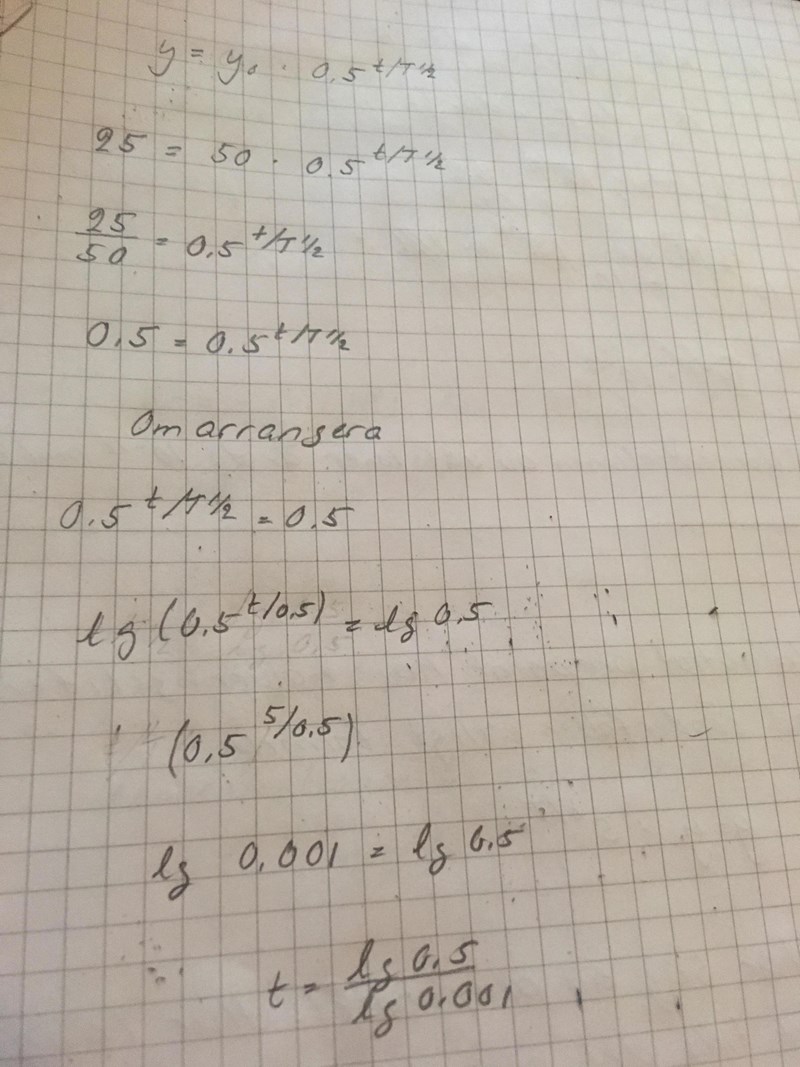 y = y₀ · 0.5^t/T½
25 = 50 · 0.5^t/T½
25/50 = 0.5^t/T½
0.5 = 0.5^t/T½
Omarrangera
0.5^t/T½ = 0.5
lg (0.5^t/0.5) = lg 0.5
(0.5^5/0.5)
lg 0.001 = lg 0.5
t = lg 0.5/lg 0.001